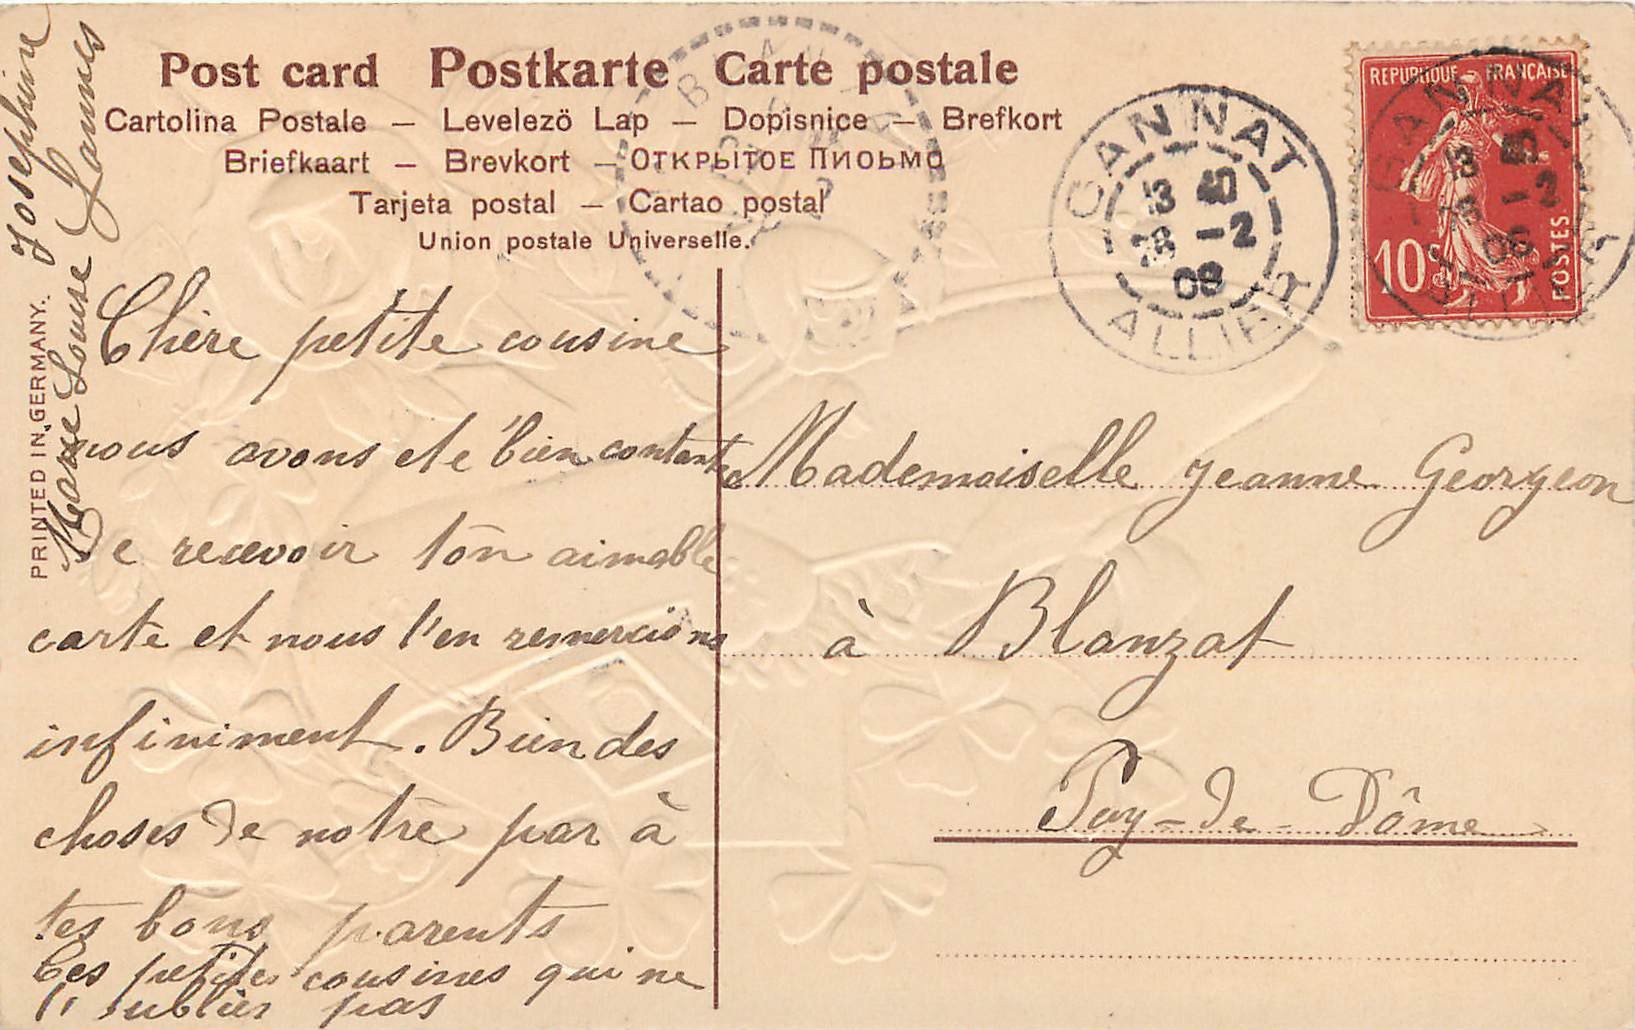 Post card Postkarte Carte postale
Cartolina Postale – Levelezö Lap – Dopisnice – Brefkort
Briefkaart – Brevkort – ОТКРЫТОЕ ПИОЬМО
Tarjeta postal – Cartao postal
Union postale Universelle.
PRINTED IN GERMANY.
GANNAT
13 40
28 -2
08
ALLIER
REPUBLIQUE FRANÇAISE
10c
POSTES
GANNAT
13 40
-2
08
Chère petite cousine
nous avons ete bien contante
de recevoir ton aimable
carte et nous t'en remercions
infiniment. Bien des
choses de notre par à
tes bons parents
Tes petites cousines qui ne
t'oublier pas
Marie Louise Josephine
Lannes
Mademoiselle Jeanne Georgeon
à Blanzat
Puy-de-Dôme